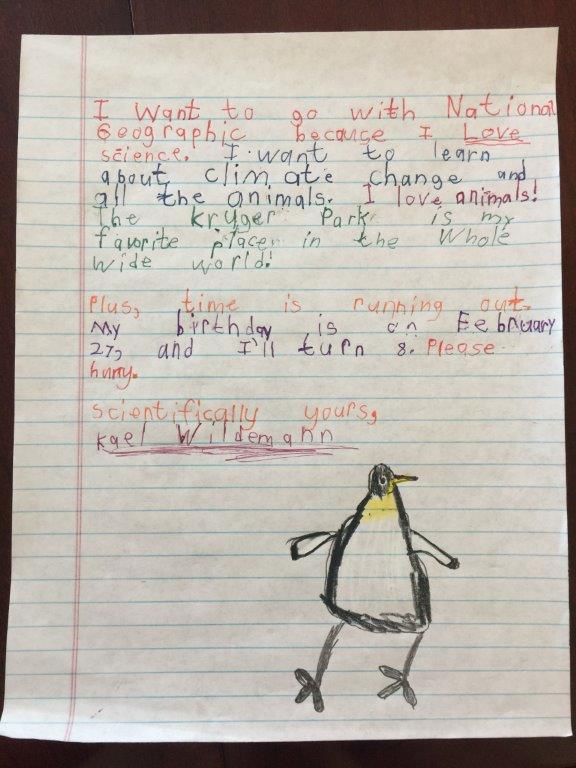 I want to go with National
Geographic because I Love
science. I want to learn
about climate change and
all the animals. I love animals!
The Kruger Park is my
favorite place in the Whole
wide world!
Plus, time is running out.
My birthday is on February
27, and I'll turn 8. Please
hurry.
scientifically yours,
Kael Wildemann